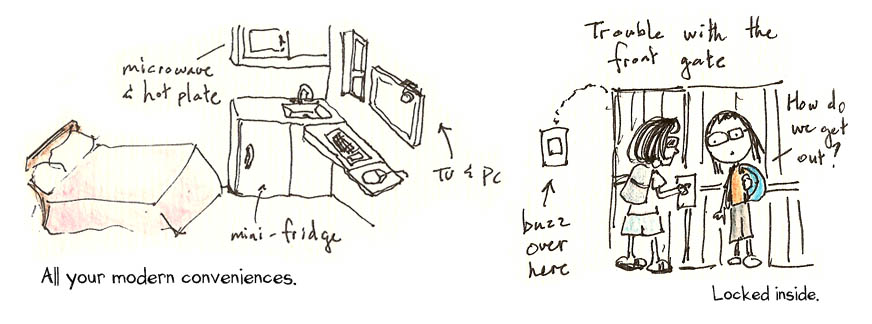 microwave
& hot plate
TV & PC
mini-fridge
All your modern conveniences.
Trouble with the
front gate
How do
we get
out?
buzz
over
here
Locked inside.